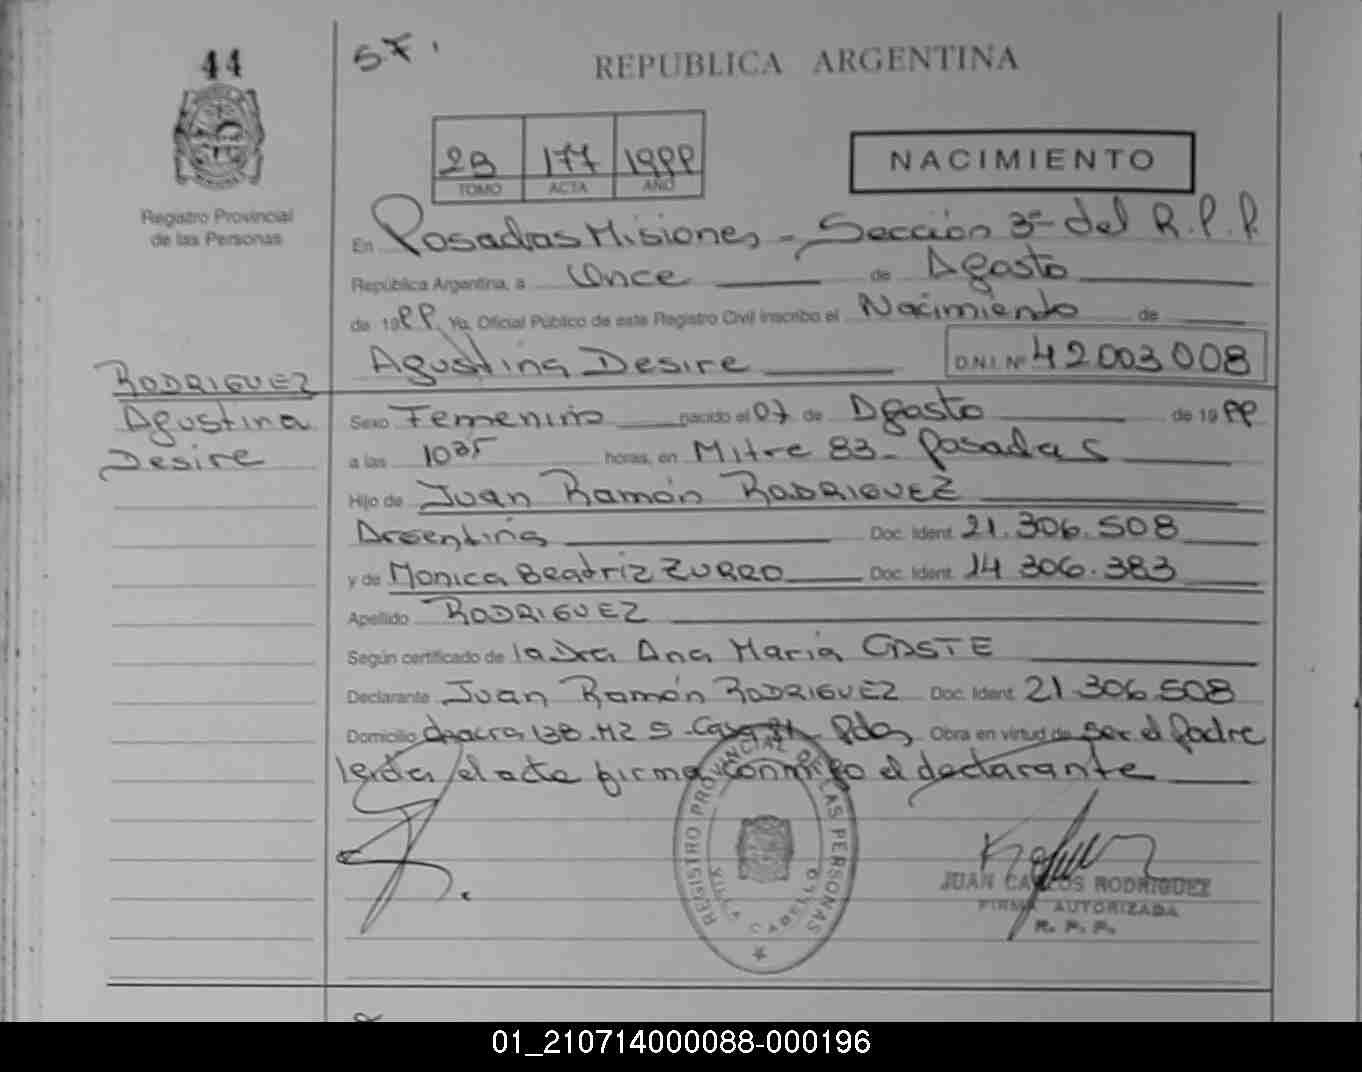 44
S.F.
REPUBLICA ARGENTINA
2B 177 1999
TOMO ACTA AÑO
NACIMIENTO
Registro Provincial
de las Personas
En Posadas Misiones, - Sección 3ª del R.P.P.
República Argentina, a Once de Agosto
de 1999. Yo, Oficial Público de este Registro Civil inscribo el Nacimiento de
Agustina Desire D.N.I. Nº 42003008
RODRIGUEZ
Agustina
Desire
Sexo Femenino nacido el 07 de Agosto de 1999
a las 10 35 horas, en Mitre 83 - Posadas
Hijo de Juan Ramón RODRIGUEZ
Argentina Doc. Ident. 21.306.508
y de Monica Beatriz ZURRO Doc. Ident. 14 306.383
Apellido RODRIGUEZ
Según certificado de la Dra Ana Maria COSTE
Declarante Juan Ramón RODRIGUEZ Doc. Ident. 21.306.508
Domicilio chacra 138 Mz 5 - Casa Pdas Obra en virtud de ser el Padre
leida el acta firma conmigo el declarante
REGISTRO PROVINCIAL DE LAS PERSONAS
VILLA CABELLO
JUAN CARLOS RODRIGUEZ
FIRMA AUTORIZADA
R. P. P.
01_210714000088-000196